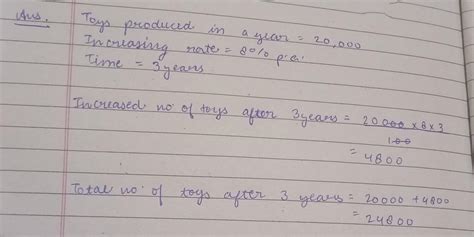 Ans. Toys produced in a year = 20,000
Increasing rate = 8% p.a.
Time = 3 years
Increased no of toys after 3 years = 20000 x 8 x 3
100
= 4800
Total no. of toys after 3 years = 20000 + 4800
= 24800